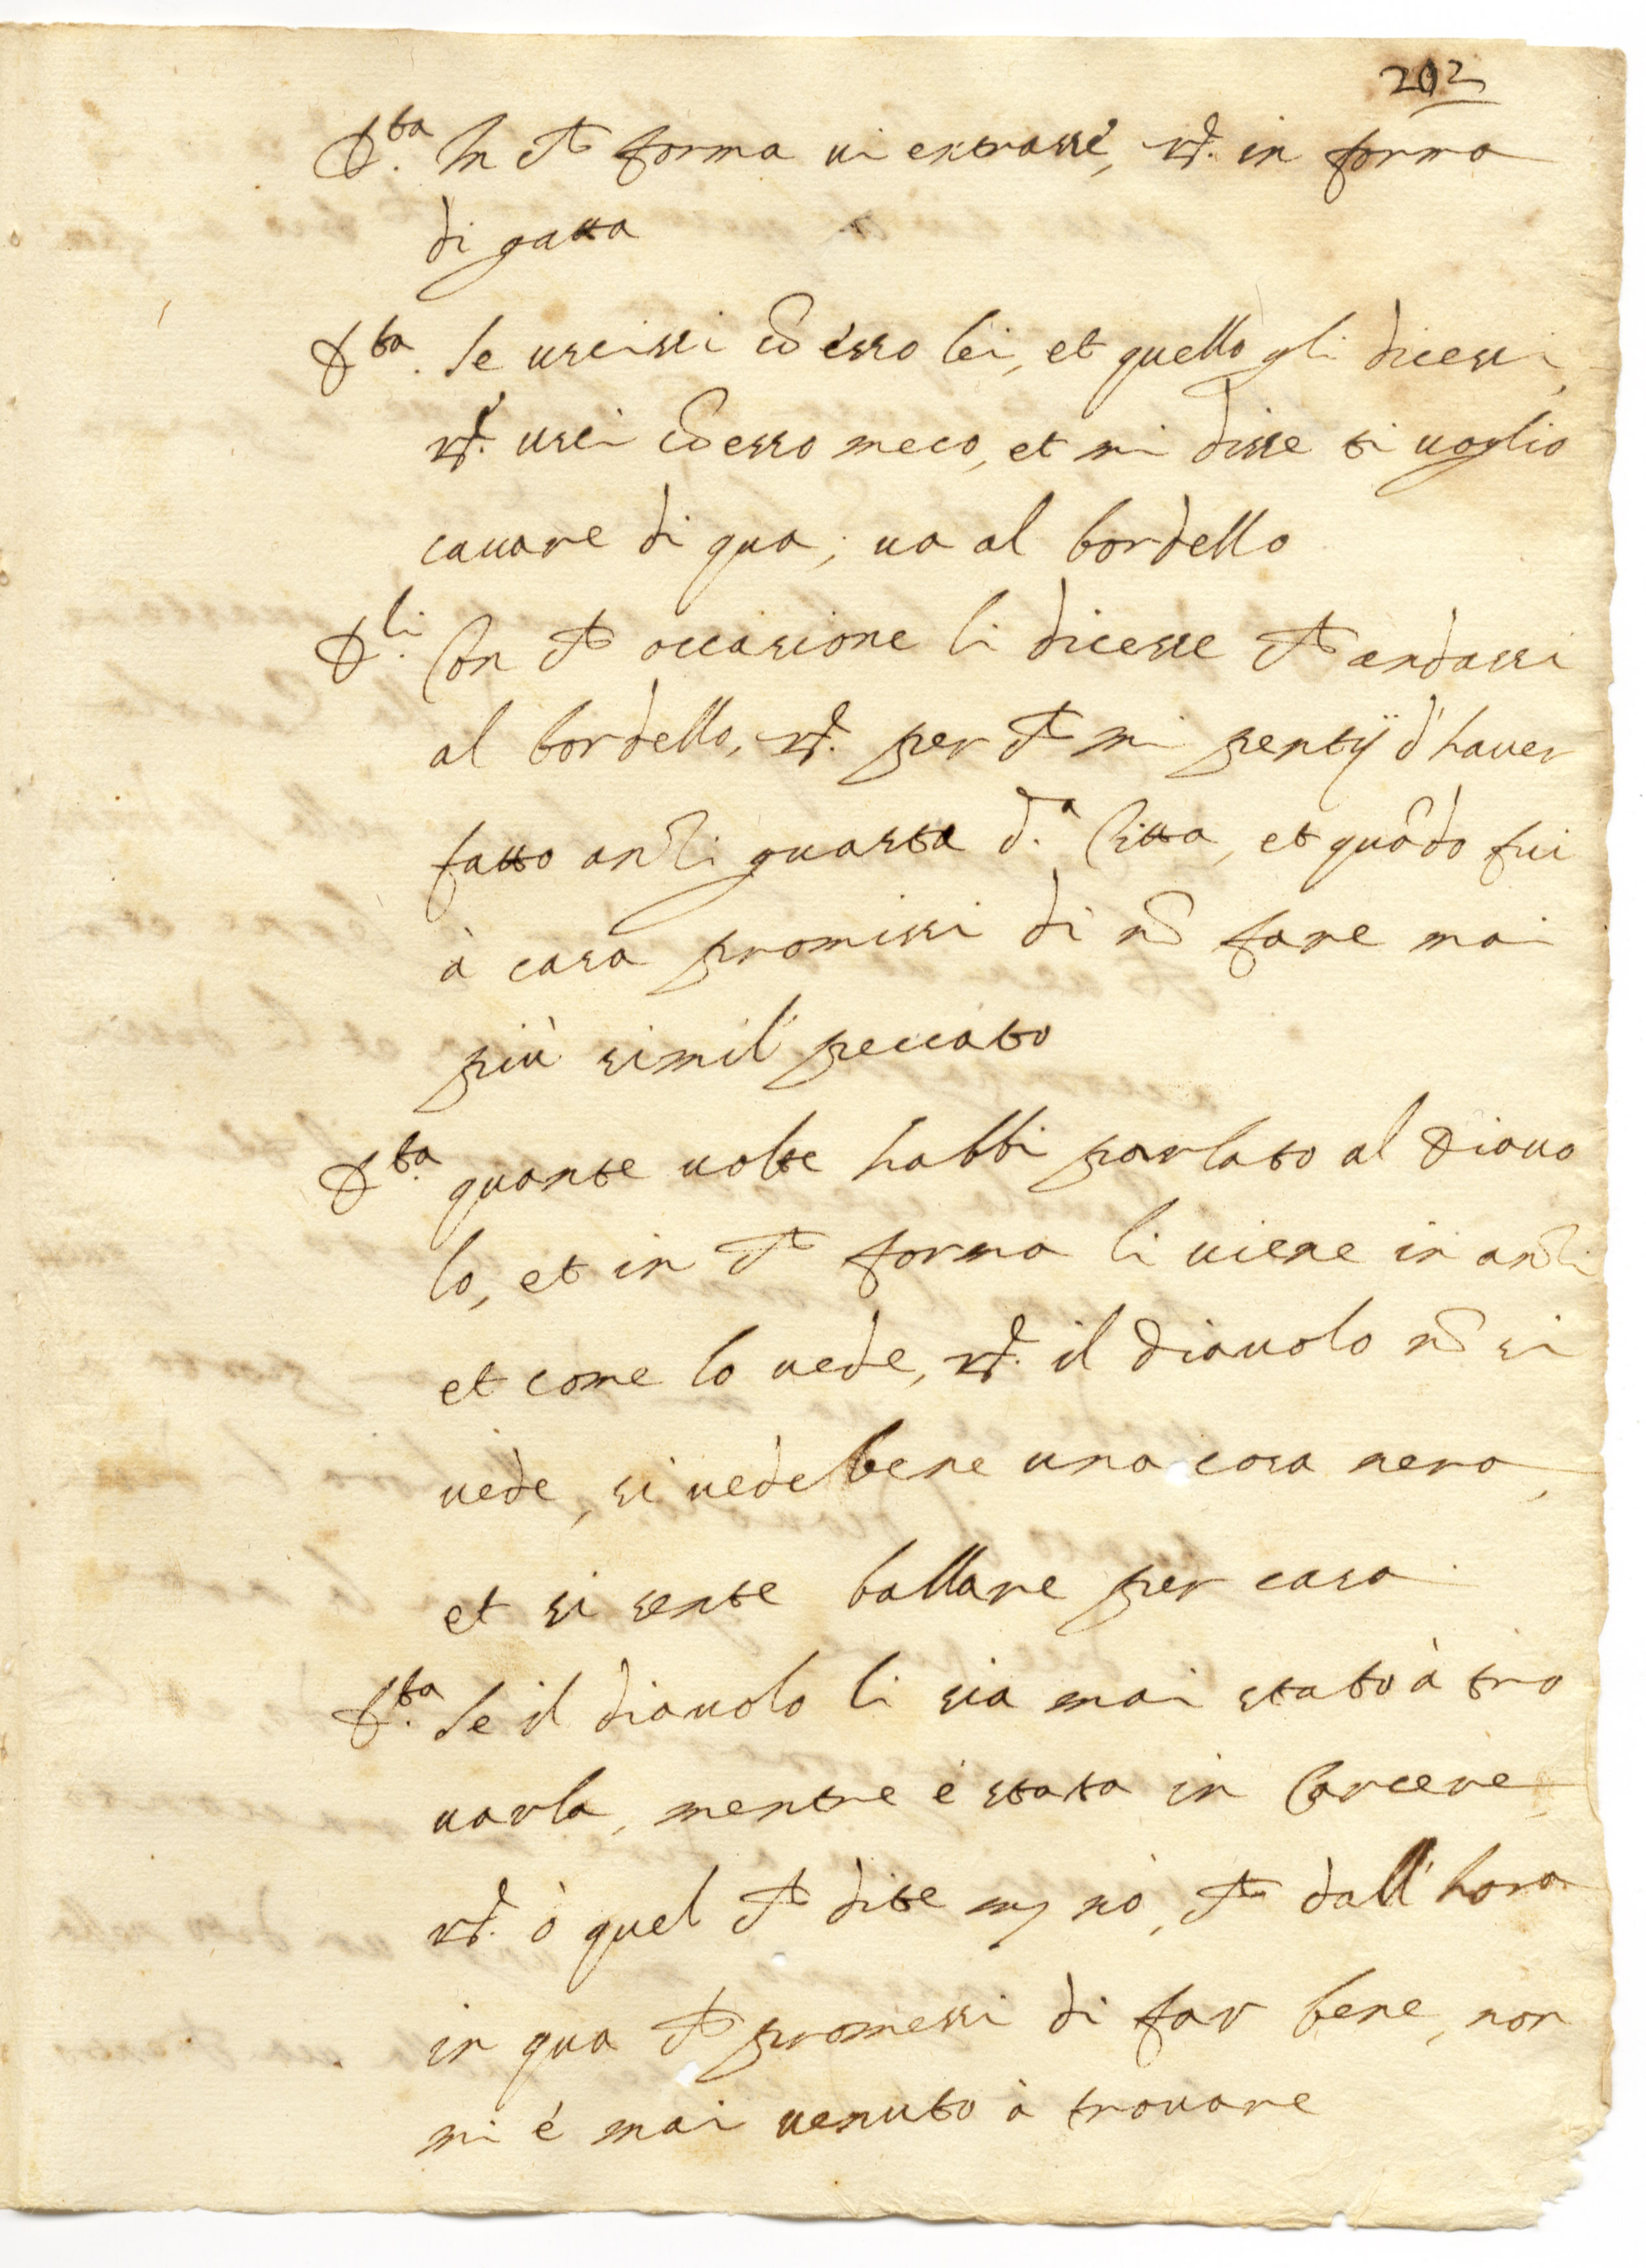 202
D.ta In che forma vi entrasse, rd. in forma
di gatta
D.ta Se uscissi cō esso lei, et quello gli dicessi,
rd. uscì cō esso meco, et mi disse ti voglio
cavare di qua, va al bordello
D.li Con che occasione li dicesse che andassi
al bordello, rd. perche mi pentij d'haver
fatto guasta d.a Citta, et quādo fui
à casa promissi di nō fare mai
più simil peccato
D.ta quante volte habbi parlato al Diavo
lo, et in che forma li viene in anzi
et come lo vede, rd. il Diavolo nō si
vede, si vede bene una cosa nera,
et si sente ballare per casa
D.ta Se il diavolo li sia mai stato à tro
varla, mentre è stata in Carcere,
rd. ò quel che dite nò, che dall'hora
in qua che promessi di far bene, non
mi è mai venuto à trovare